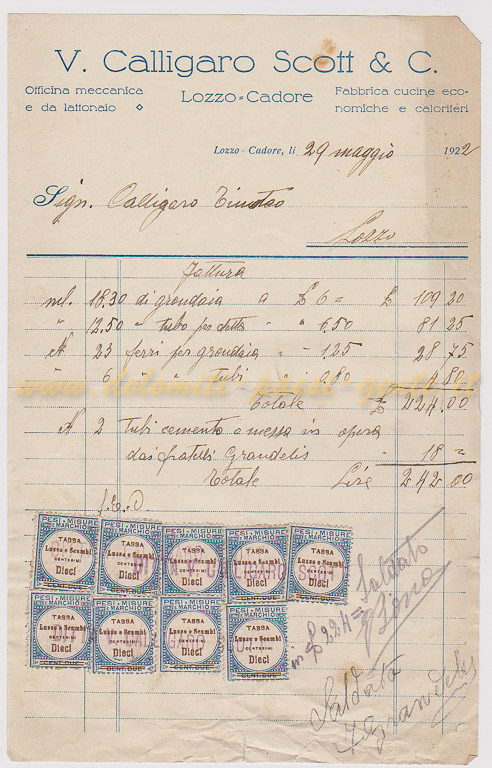 V. Calligaro Scott & C.
Officina meccanica
e da lattonaio
Lozzo-Cadore
Fabbrica cucine eco-
nomiche e caloriféri
Lozzo - Cadore, li 29 maggio 1922
Sign. Calligaro
Lozzo
Fattura
ml. 18.30 di grondaia a £ 6 = £ 109 20
" 12.50 " tubo per detta " " 6.50 81 25
N 23 ferri per grondaia " - 1.25 28 75
" 6 " " tubi " 0.80 4 80
Totale £ 224.00
N 2 tubi cemento e messa in opera
dai fratelli Grandelis " 18 =
Totale Lire 242 00
PESI - MISURE E MARCHIO
TASSA
Lusso e Scambi
CENTESIMI
Dieci
CENT. DUE
PESI - MISURE E MARCHIO
TASSA
Lusso e Scambi
CENTESIMI
Dieci
PESI - MISURE E MARCHIO
TASSA
Lusso e Scambi
CENTESIMI
Dieci
CENT. DUE
PESI - MISURE E MARCHIO
TASSA
Lusso e Scambi
CENTESIMI
Dieci
CENT. DUE
PESI - MISURE E MARCHIO
TASSA
Lusso e Scambi
CENTESIMI
Dieci
CENT. DUE
PESI - MISURE E MARCHIO
TASSA
Lusso e Scambi
CENTESIMI
Dieci
CENT. DUE
PESI - MISURE E MARCHIO
TASSA
Lusso e Scambi
CENTESIMI
Dieci
PESI - MISURE E MARCHIO
TASSA
Lusso e Scambi
CENTESIMI
Dieci
CENT. DUE
PESI - MISURE E MARCHIO
TASSA
Lusso e Scambi
CENTESIMI
Dieci
CENT. DUE
Saldato
in £ 224 =
Saldato
Grandelis